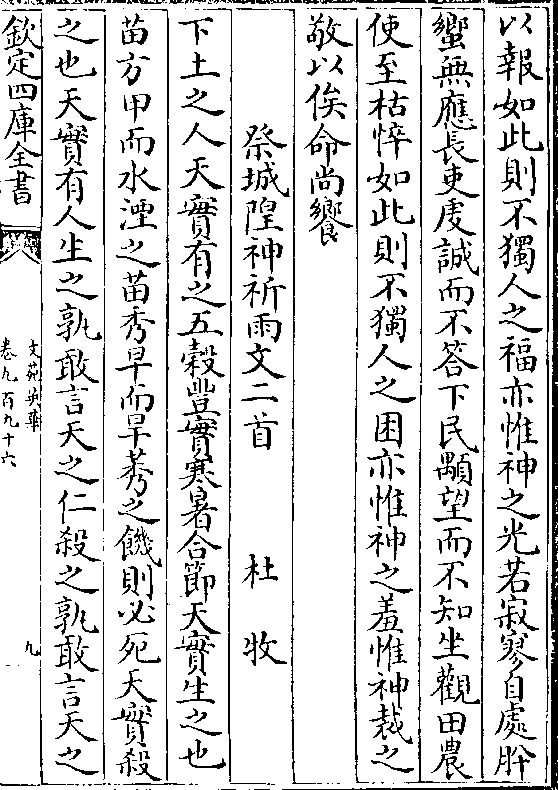 以報如此則不獨人之福亦惟神之光若寂寥自處肸
蠁無應長吏虔誠而不答下民顒望而不知坐觀田農
使至枯悴如此則不獨人之困亦惟神之羞惟神裁之
敬以俟命尚饗
祭城隍神祈雨文二首 杜牧
下土之人天實有之五穀豐實寒暑合節天實生之也
苗方甲而水湮之苗秀早而旱莠之饑則必死天實殺
之也天實有人生之孰敢言天之仁殺之孰敢言天之
欽定四庫全書
文苑英華
卷九百九十六
九